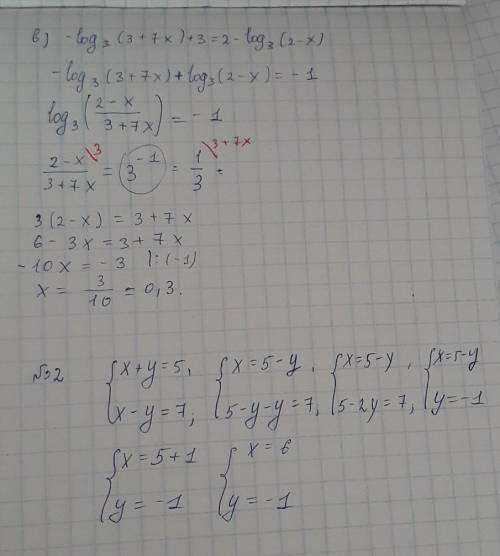 в) -log₃(3+7x)+3=2-log₃(2-x)
-log₃(3+7x)+log₃(2-x)=-1
log₃((2-x)/(3+7x))=-1
(2-x)/(3+7x) \3 = 3⁻¹ = 1/3 \3+7x =
3(2-x)=3+7x
6-3x=3+7x
-10x=-3 |:(-1)
x=3/10=0,3.
№2 {x+y=5, x-y=7; {x=5-y, 5-y-y=7, {x=5-y, 5-2y=7, {x=5-y y=-1
{x=5+1 y=-1 {x=6 y=-1